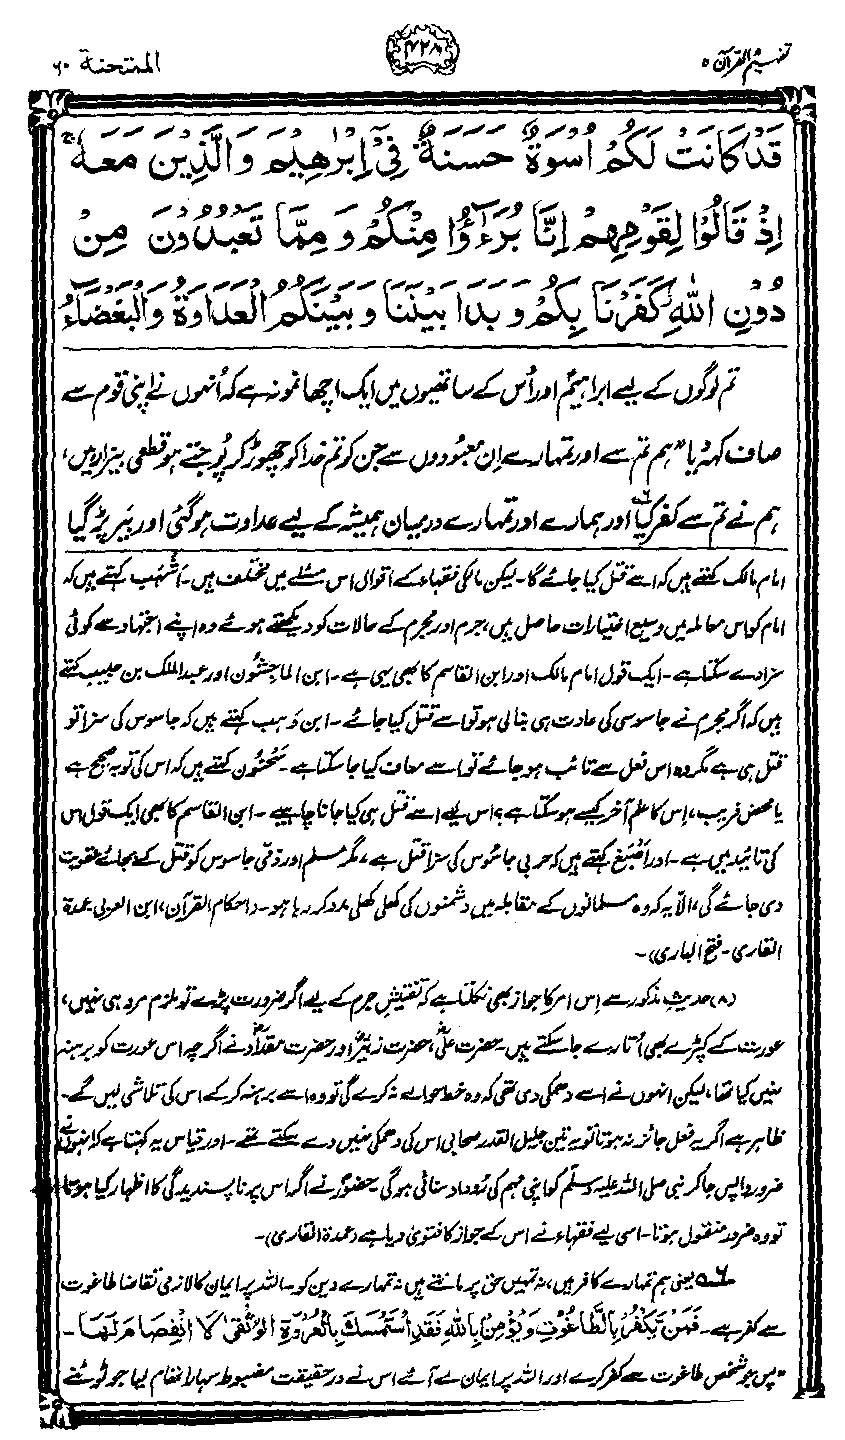 تفہیم القرآن ۵
۴۲۸
الممتحنۃ ۶۰
قَدْ كَانَتْ لَكُمْ اُسْوَةٌ حَسَنَةٌ فِيْٓ اِبْرٰهِيْمَ وَالَّذِيْنَ مَعَهٗ ۚ
اِذْ قَالُوْا لِقَوْمِهِمْ اِنَّا بُرَءٰٓؤُا مِنْكُمْ وَمِمَّا تَعْبُدُوْنَ مِنْ
دُوْنِ اللهِ كَفَرْنَا بِكُمْ وَبَدَا بَيْنَنَا وَبَيْنَكُمُ الْعَدَاوَةُ وَالْبَغْضَآءُ
تم لوگوں کے لیے ابراہیمؑ اور اُس کے ساتھیوں میں ایک اچھا نمونہ ہے کہ اُنہوں نے اپنی قوم سے
صاف کہہ دیا "ہم تم سے اور تمہارے اِن معبودوں سے جن کو تم خدا کو چھوڑ کر پُوجتے ہو قطعی بیزار ہیں،
ہم نے تم سے کفر کیا۶ اور ہمارے اور تمہارے درمیان ہمیشہ کے لیے عداوت ہوگئی اور بَیر پڑ گیا
امام مالک کہتے ہیں کہ اسے قتل کیا جائے گا۔ لیکن مالکی فقہاء کے اقوال اس مسئلے میں مختلف ہیں۔ اَشْہَب کہتے ہیں کہ
امام کو اس معاملہ میں وسیع اختیارات حاصل ہیں، جرم اور مجرم کے حالات کو دیکھتے ہوئے وہ اپنے اجتہاد سے کوئی
سزا دے سکتا ہے۔ ایک قول امام مالک اور ابن القاسم کا بھی یہی ہے۔ ابن الماجشُون اور عبدالملک بن حبیب کہتے
ہیں کہ اگر مجرم نے جاسوسی کی عادت ہی بنالی ہو تو اسے قتل کیا جائے۔ ابن وَہب کہتے ہیں کہ جاسوس کی سزا تو
قتل ہی ہے مگر وہ اس فعل سے تائب ہو جائے تو اسے معاف کیا جا سکتا ہے۔ سَحْنُون کہتے ہیں کہ اس کی توبہ صحیح ہے
یا محض فریب، اِس کا علم آخر کیسے ہو سکتا ہے؟ اس لیے اسے قتل ہی کیا جانا چاہیے۔ ابن القاسم کا بھی ایک قول اس
کی تائید میں ہے۔ اور اَصْبَغ کہتے ہیں کہ حربی جاسُوس کی سزا قتل ہے، مگر مسلم اور ذمّی جاسوس کو قتل کے بجائے عقوبت
دی جائے گی، الّا یہ کہ وہ مسلمانوں کے مقابلہ میں دشمنوں کی کھلی کھلی مدد کر رہا ہو۔ (احکام القرآن، ابن العربی۔ عمدۃ
القاری۔ فتح الباری)۔
(۸) حدیث مذکور سے اِس امر کا جواز بھی نکلتا ہے کہ تفتیشِ جرم کے لیے اگر ضرورت پڑے تو ملزم مرد ہی نہیں،
عورت کے کپڑے بھی اُتارے جا سکتے ہیں۔ حضرت علیؓ، حضرت زبیرؓ اور حضرت مقدادؓ نے اگرچہ اس عورت کو برہنہ
نہیں کیا تھا، لیکن انہوں نے اسے دھمکی دی تھی کہ وہ خط حوالے نہ کرے گی تو وہ اسے برہنہ کر کے اس کی تلاشی لیں گے۔
ظاہر ہے اگر یہ فعل جائز نہ ہوتا تو یہ تین جلیل القدر صحابی اس کی دھمکی نہیں دے سکتے تھے۔ اور قیاس یہ کہتا ہے کہ انہوں نے
ضرور واپس جا کر نبی صلی اللہ علیہ وسلّم کو اپنی مہم کی رُوداد سنائی ہوگی۔ حضورؐ نے اگر اس پر ناپسندیدگی کا اظہار کیا ہوتا
تو وہ ضرور منقول ہوتا۔ اسی لیے فقہاء نے اس کے جواز کا فتویٰ دیا ہے (عمدۃ القاری)۔
۶ یعنی ہم تمہارے کافر ہیں، نہ تمہیں حق پر مانتے ہیں نہ تمہارے دین کو۔ اللہ پر ایمان کا لازمی تقاضا طاغوت
سے کفر ہے۔ فَمَنْ يَّكْفُرْ بِالطَّاغُوْتِ وَيُؤْمِنْ بِاللهِ فَقَدِ اسْتَمْسَكَ بِالْعُرْوَةِ الْوُثْقٰى لَا انْفِصَامَ لَهَا۔
"پس جو شخص طاغوت سے کفر کرے اور اللہ پر ایمان لے آئے اس نے درحقیقت مضبوط سہارا تھام لیا جو ٹوٹنے